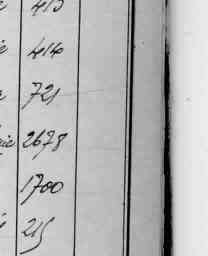 413
414
721
2678
1700
215